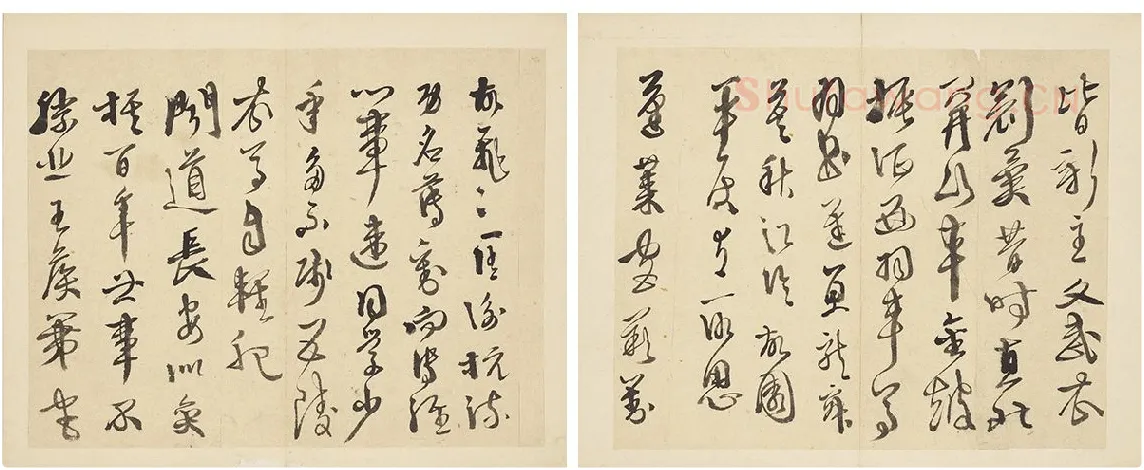 故飛飛匡衡抗疏
功名薄劉向傳經
心事違同學少
年多不賤五陵
衣馬自輕肥
聞道長安似奕
棋百年世事不
勝悲王侯第宅
皆新主文武衣
冠異昔時直北
關山車金鼓
振征西車馬
羽書遲魚龍寂
寞秋江冷故國
平居有所思
蓬萊宮闕對